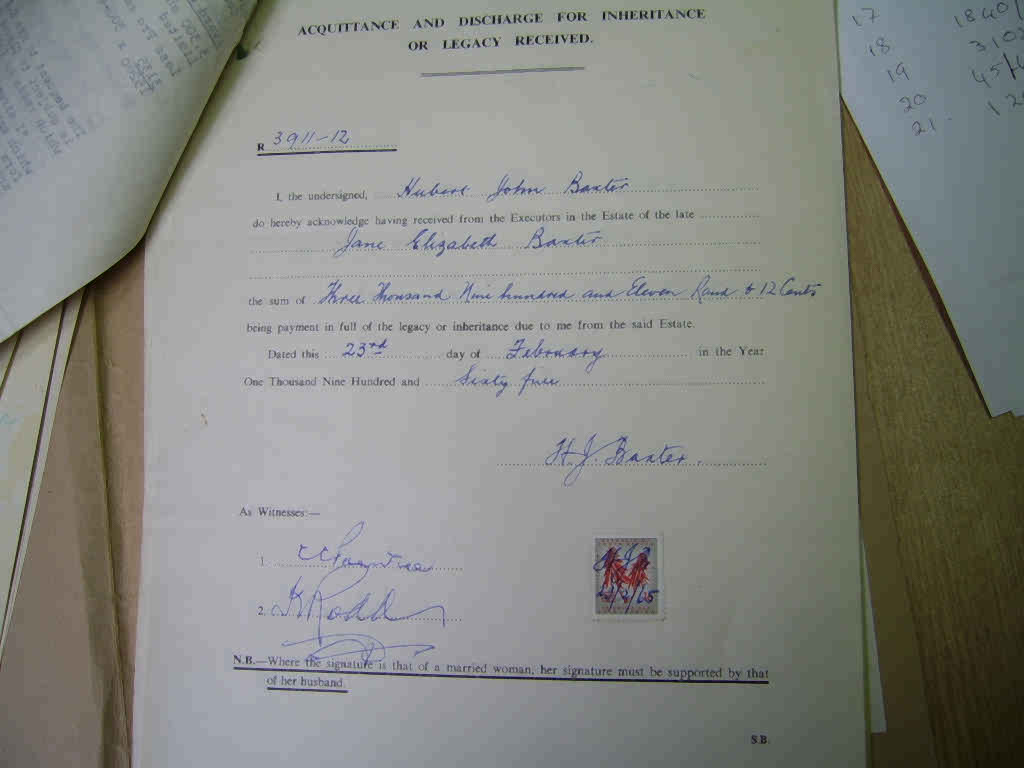 ACQUITTANCE AND DISCHARGE FOR INHERITANCE
OR LEGACY RECEIVED.
R 3911-12
I, the undersigned, Hubert John Baxter
do hereby acknowledge having received from the Executors in the Estate of the late
Jane Elizabeth Baxter
the sum of Three Thousand Nine hundred and Eleven Rand & 12 Cents
being payment in full of the legacy or inheritance due to me from the said Estate.
Dated this 23rd day of February in the Year
One Thousand Nine Hundred and Sixty five
H.J. Baxter.
As Witnesses:—
1.
2. K Rodd
23/2/65
N.B.—Where the signature is that of a married woman, her signature must be supported by that
of her husband.
S.B.
17 1840/
18 3103
19 45/
20 12
21.